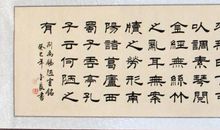 來無白丁可
以調素琴閱
金經無絲竹
之亂耳無案
牘之勞形南
陽諸葛廬西
蜀子雲亭孔
子云何陋之
有
劉禹錫陋室銘
癸巳年